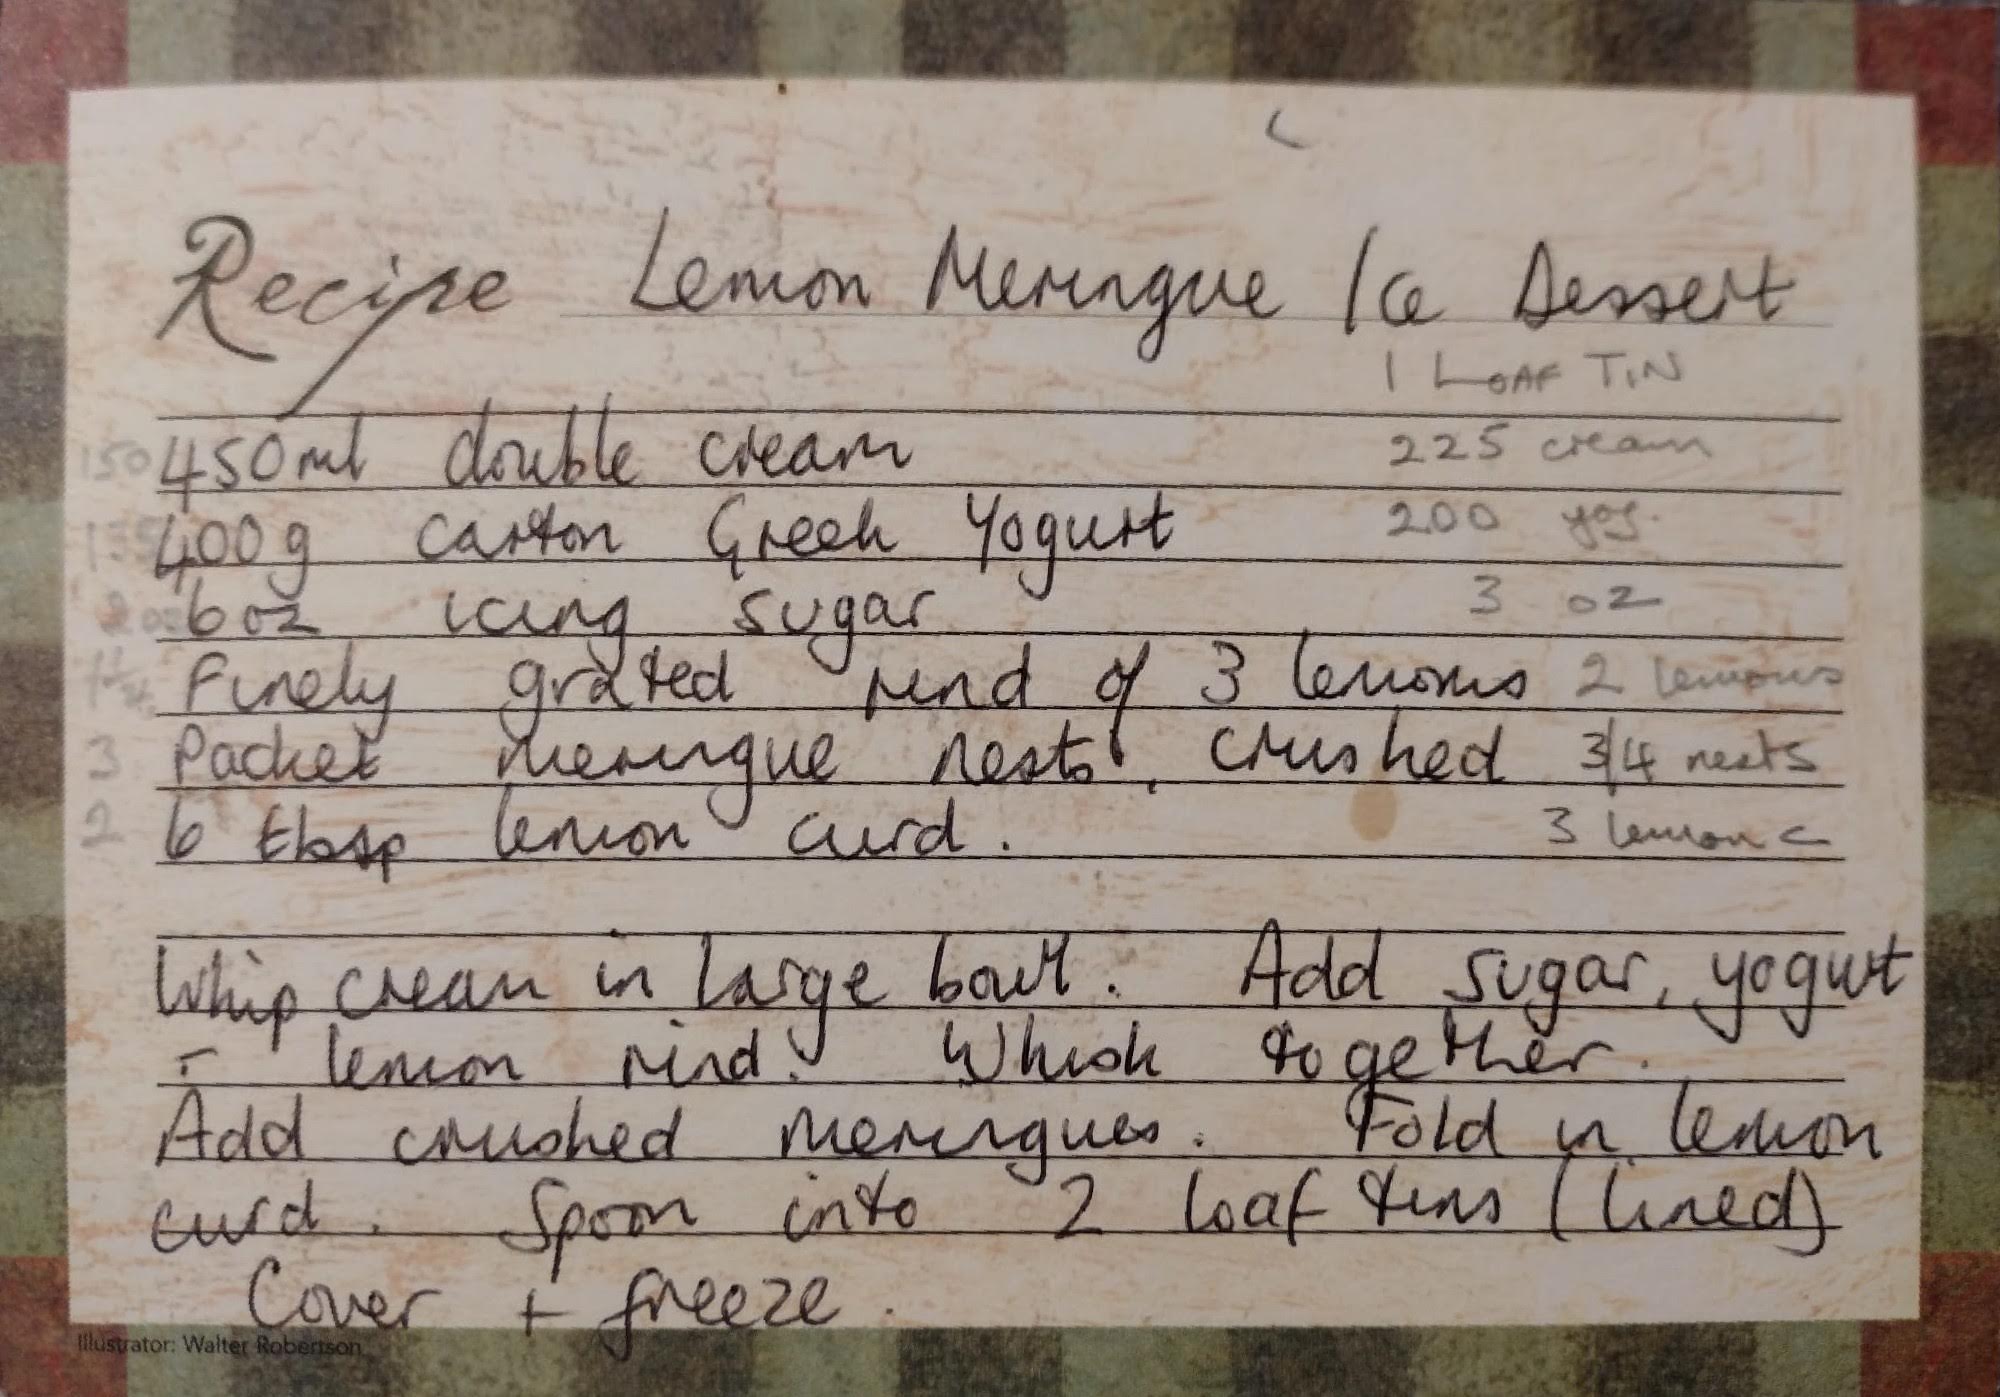 Recipe Lemon Meringue Ice Dessert
1 LOAF TIN
150 450ml double cream 225 cream
400g carton Greek Yogurt 200 yog.
2oz 6oz icing sugar 3 oz
1½ Finely grated rind of 3 lemons 2 lemons
3 Packet meringue nests, crushed 3/4 nests
2 6 tbsp lemon curd. 3 lemon c
Whip cream in large bowl. Add sugar, yogurt
+ lemon rind. Whisk together.
Add crushed meringues. Fold in lemon
curd. Spoon into 2 loaf tins (lined)
Cover + freeze.
Illustrator: Walter Robertson